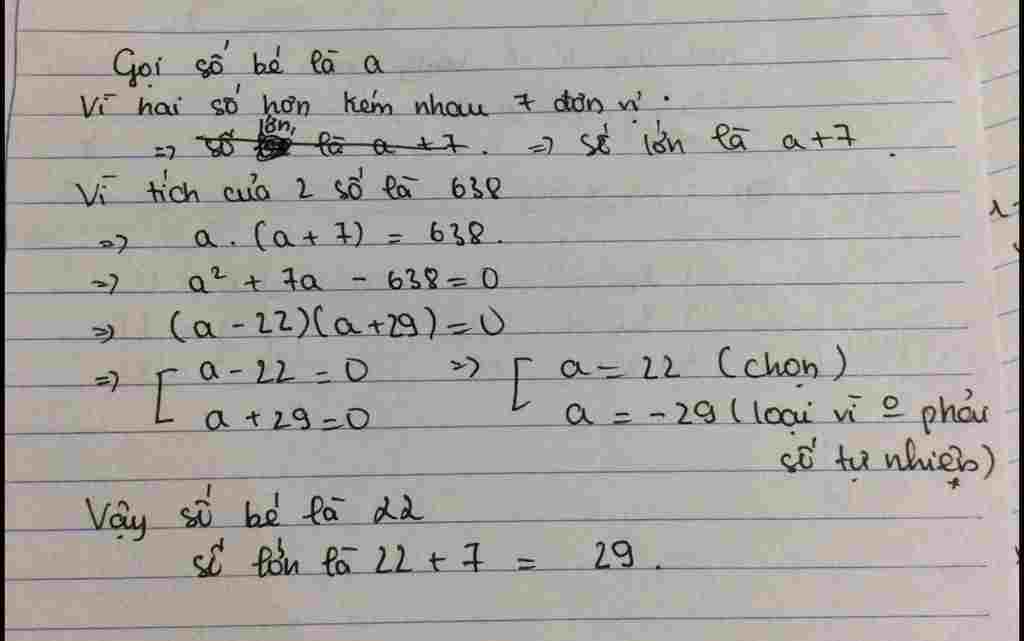 Gọi số bé là a
Vì hai số hơn kém nhau 7 đơn vị.
=> số lớn là a + 7. => số lớn là a+7.
Vì tích của 2 số là 638
=> a . (a + 7) = 638.
=> a² + 7a - 638 = 0
=> (a - 22)(a + 29) = 0
=> [ a - 22 = 0 => [ a = 22 (chọn)
a + 29 = 0 a = -29 (loại vì o phải
số tự nhiên)
Vậy số bé là 22
số lớn là 22 + 7 = 29.